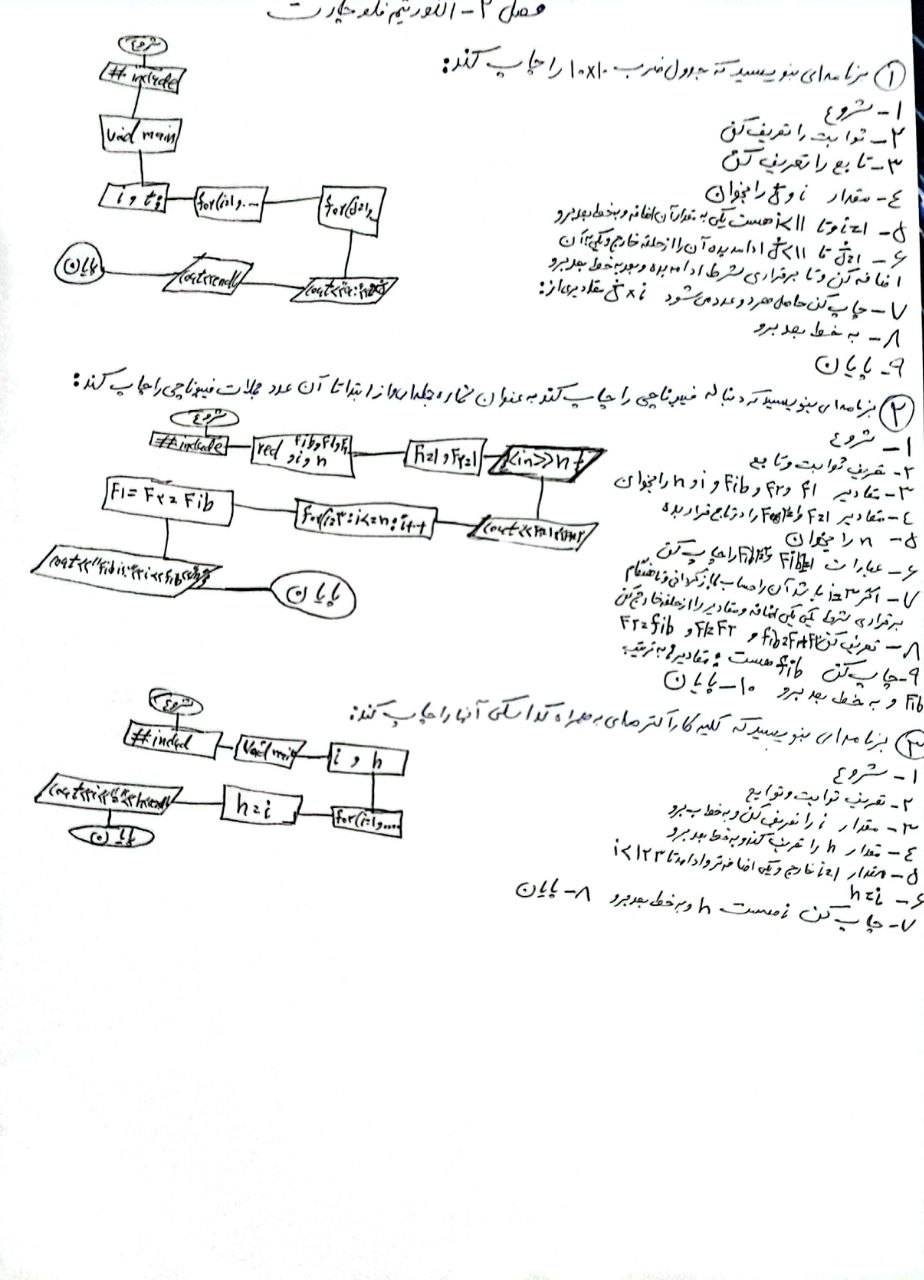 فصل ۲ - الگوریتم فلوچارت
① برنامه‌ای بنویسید که جدول ضرب ۱۰×۱۰ را چاپ کند:
۱- شروع
۲- ثوابت را تعریف کن
۳- تابع را تعریف کن
۴- مقدار i و j را بخوان
۵- i=1 و تا i<11 هست یکی به مقدار آن اضافه و به خط بعد برو
۶- j=1 تا j<11 ادامه بده آن را از حلقه خارج و یکی به آن
اضافه کن و تا برقراری شرط ادامه بده و بعد به خط بعد برو
۷- چاپ کن حاصل ضرب دو عدد می شود i×j مقادیری از:
۸- به خط بعد برو
۹- پایان
شروع
#include
void main
i , j;
for(i=1,...
for(j=1,..
cout<<endl
پایان
② برنامه‌ای بنویسید که دنباله فیبوناچی را چاپ کند به عنوان شماره جمله‌ای و از ابتدا تا آن عدد جملات فیبوناچی را چاپ کند:
۱- شروع
۲- تعریف ثوابت و تابع
۳- مقادیر f1 و f2 و Fib و i و n را بخوان
۴- مقادیر F1=1 و F2=1 را در تابع قرار بده
۵- n را بخوان
۶- عبارات را چاپ کن
۷- اگر i=3 باشد آن را حساب
برقراری شرط یکی یکی اضافه و مقادیر را از حلقه خارج کن
۸- تعریف کن fib=F1+F2 و F1=F2 و F2=fib
۹- چاپ کن fib هست : مقادیر به ترتیب
Fib و به خط بعد برو ۱۰- پایان
شروع
#include
red fib,f1,f2
,i,n
F1=1,F2=1
cin>>n
for(i=3;i<=n;i++
F1=F2=Fib
پایان
③ برنامه‌ای بنویسید که کلیه کاراکترهای به همراه کد اسکی آنها را چاپ کند:
۱- شروع
۲- تعریف ثوابت و توابع
۳- مقدار i را تعریف کن و به خط ب برو
۴- مقدار h را تعریف کن و به خط بعد برو
۵- مقدار i=1 خارج و یکی اضافه تر و ادامه تا i<123
۶- h=i
۷- چاپ کن i هست h و به خط بعد برو ۸- پایان
شروع
#includ
void main
i , h
for(i=1,....
h=i
پایان